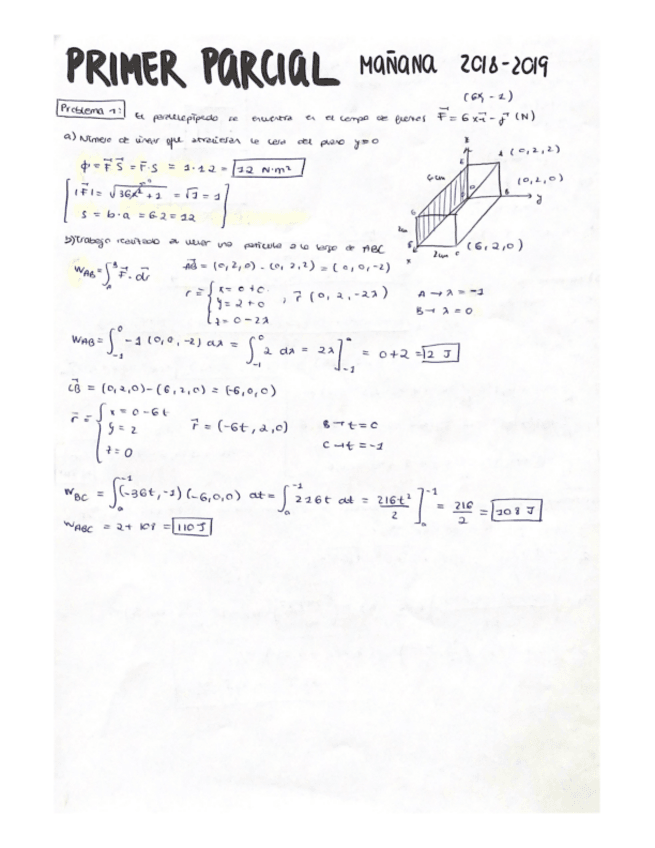 PRIMER PARCIAL MAÑANA 2018-2019
(6x, -1)
Problema 1: El paralelepípedo se encuentra en el campo de fuerzas F⃗ = 6x i⃗ - j⃗ (N)
a) Número de líneas que atraviesan la cara del plano y=0
Φ = F⃗ · S⃗ = F · S = 1 · 12 = 12 N·m²
|F⃗| = √36x² + 1 = √1 = 1
S = b · a = 6·2 = 12
A (0,2,2)
(0,2,0)
B
z
y
x
6cm
2cm
2cm C (6,2,0)
b) Trabajo realizado al llevar una partícula a lo largo de ABC
W_AB = ∫ F⃗ · dr⃗ AB⃗ = (0,2,0) - (0,2,2) = (0,0,-2)
r = { x = 0+0 y = 2+0 z = 0-2λ , r⃗ (0, 2, -2λ) A → λ = -1
B → λ = 0
W_AB = ∫₋₁⁰ -1 (0,0,-2) dλ = ∫₋₁⁰ 2 dλ = 2λ]₋₁⁰ = 0+2 = 2 J
CB⃗ = (0,2,0) - (6,2,0) = (-6,0,0)
r⃗ = { x = 0-6t y = 2 z = 0 r⃗ = (-6t, 2, 0) B → t = 0
C → t = -1
W_BC = ∫₀⁻¹ (-36t, -1) (-6,0,0) dt = ∫₀⁻¹ 216t dt = 216t²/2 ]₀⁻¹ = 216/2 = 108 J
W_ABC = 2 + 108 = 110 J